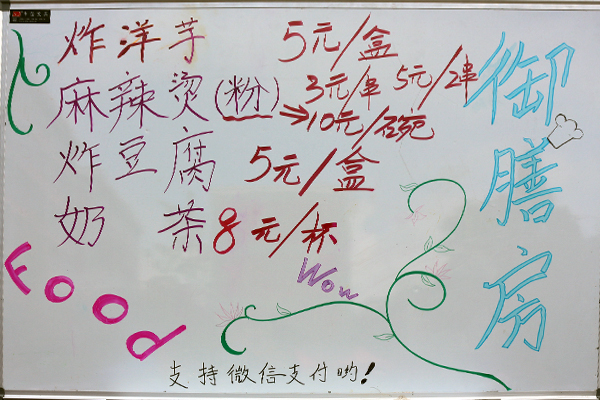 炸洋芋 5元/盒
麻辣烫(粉) 3元/串 5元/2串
→10元/碗
炸豆腐 5元/盒
奶 茶 8元/杯
御膳房
Food
Wow
支持微信支付哟!